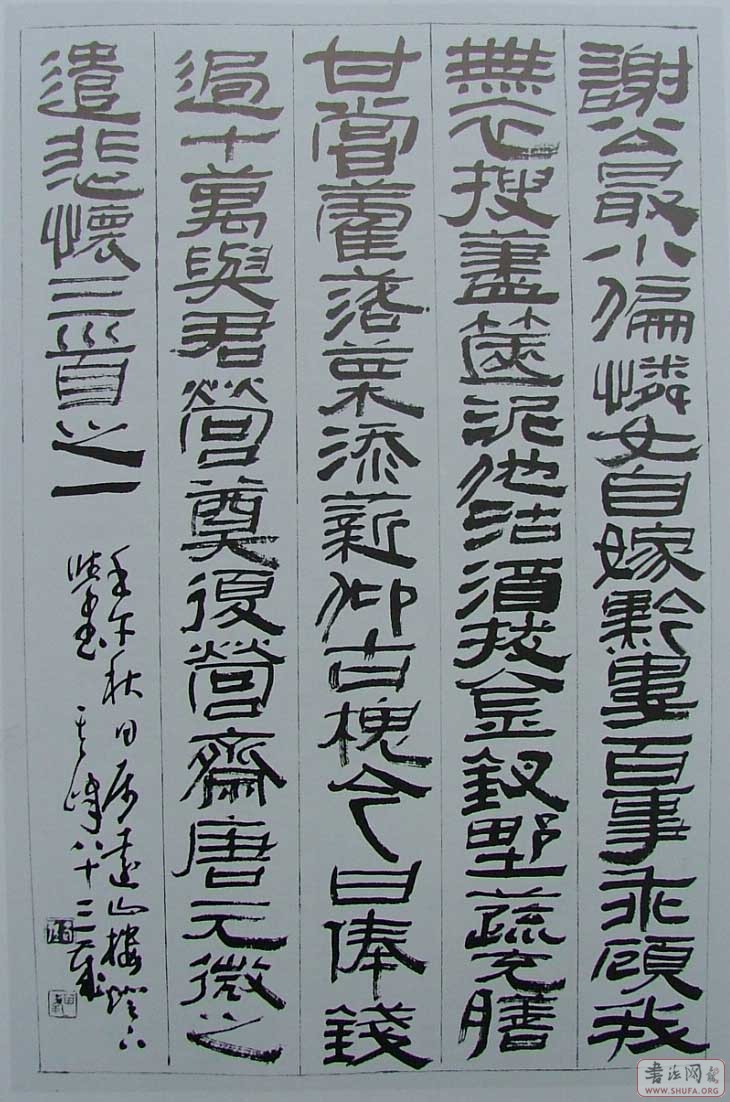 謝公最小偏憐女自嫁黔婁百事乖顧我
無衣搜藎篋泥他沽酒拔金釵野蔬充膳
甘嘗藿落葉添薪仰古槐今日俸錢
過十萬與君營奠復營齋唐元微之
遣悲懷三首之一
癸未秋日 山樓燈下
書 其峰八十三歲
書法网
WWW.SHUFA.ORG